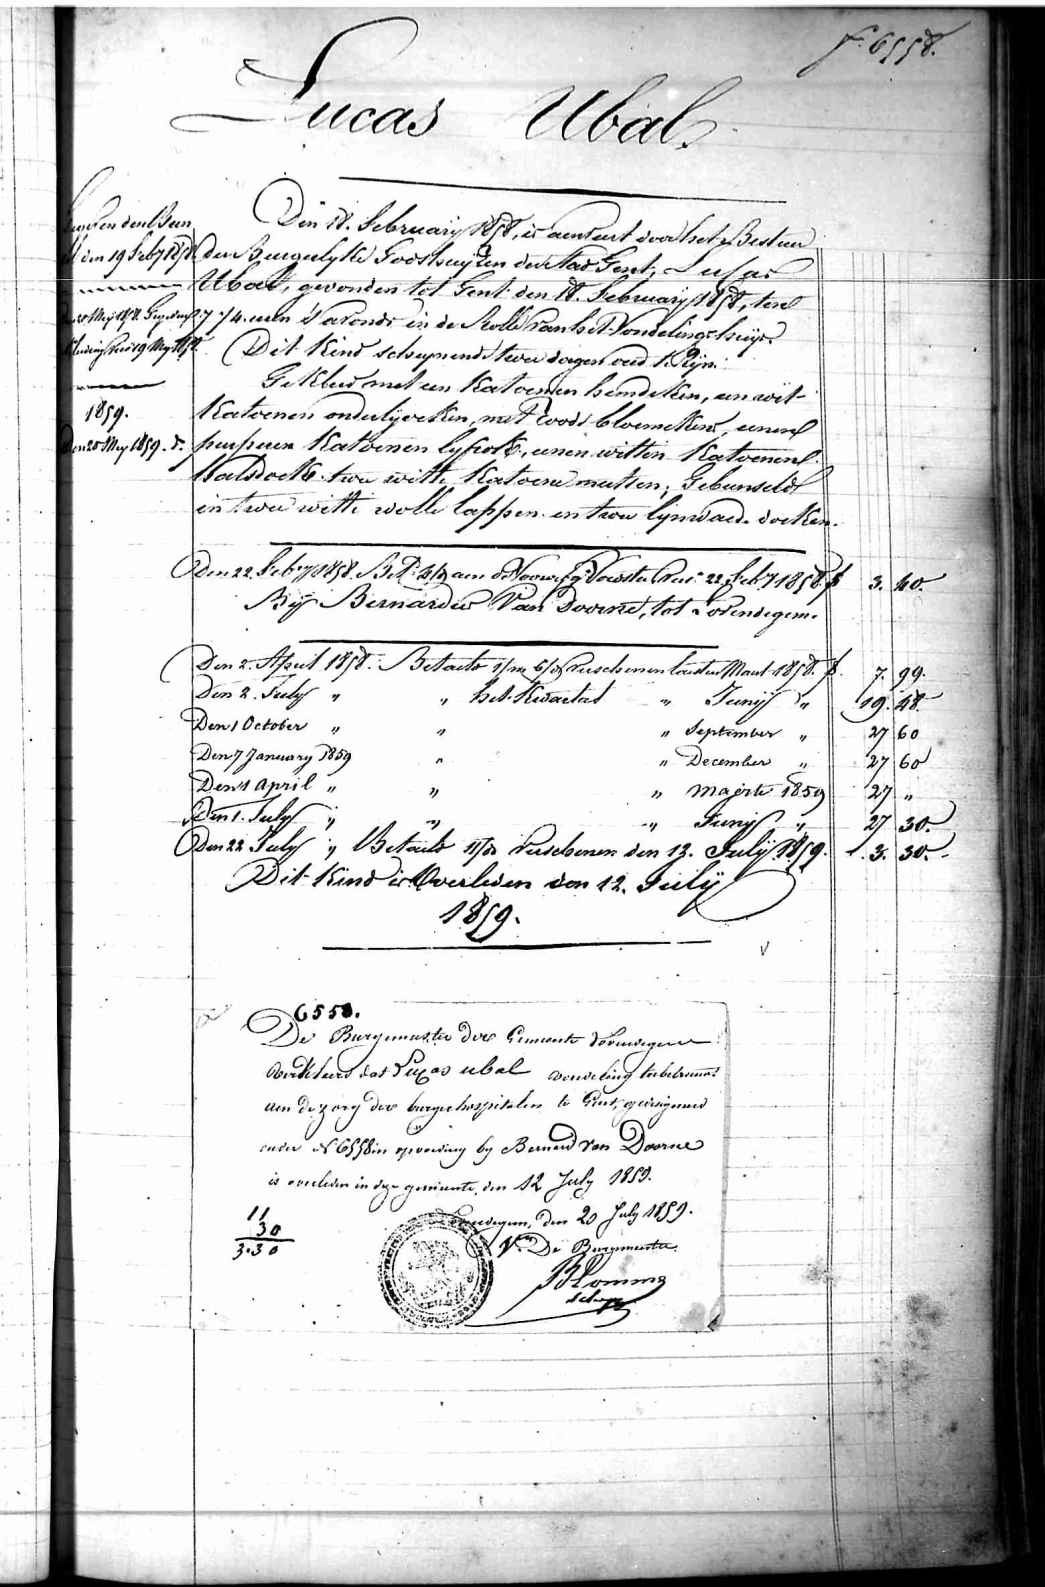 f. 6558.
Lucas Ubal.
Den 18. February 1858, is aenveert door het Bestuer
der Burgerlyke Godshuyzen der Stad Gent, Lucas
Ubal, gevonden tot Gent den 18. February 1858, ten
7 1/4 uren 's avonds in de Rolle van het Vondelingshuys.
Dit Kind schynende twee dagen oud te Zyn.
Gekleed met een Katoenen hemdeken, een wit
Katoenen onderlyveken, met roode bloemekens, eenen
purperen Katoenen lyfrok, eenen witten Katoenen
Halsdoek, twee witte Katoene mutsen; Gebunseld
in twee witte wolle lappen en twee lynwaede doeken.
den 19 Feby 1858
1859.
Den 25 Mey 1859.
Den 22 Feby 1858. Bet. aen de Voorw. 22 Feby 1858. f 3. 40.
Bij Bernardus Van Doorne, tot Lovendegem.
Den 2. April 1858. Betaeld verschenen laesten Maert 1858. f. 7. 99.
Den 2. July " " het Kwartael " Junij " 19. 48.
Den 1 October " " " September " 27 60
Den 7 January 1859 " " December " 27 60
Den 1 April " " " Maerte 1859 27 "
Den 1. July " " " Junij " 27 30.
Den 22 July " Betaeld verschenen den 12. July 1859. 3. 30.
Dit Kind is Overleden den 12. July
1859.
6558.
De Burgemeester der Gemeente Lovendegem
verklaerd dat Lucas Ubal vondeling toebetrouwd
aen de zorg der burgerhospitalen te Gent, geteekend
onder N 6558 in opvoeding by Bernard Van Doorne
is overleden in deze gemeente, den 12 July 1859.
den 20 July 1859.
De Burgemeester.
11
30
3.30